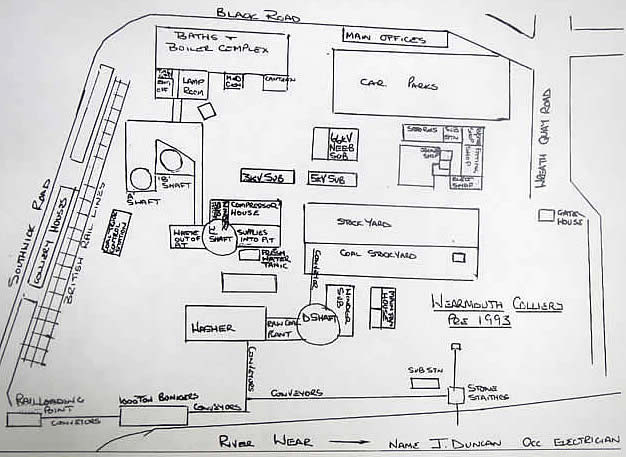 BLACK ROAD
BATHS +
BOILER COMPLEX
MAIN OFFICES
LAMP
ROOM
MED
CEN
CANTEEN
CAR PARKS
66KV
NEEB
SUB
STORES
SUB
STN
FITTING
SHOP
ELECT
SHOP
WREATH QUAY ROAD
SOUTHWICK ROAD
COLLIERY HOUSES
BRITISH RAIL LINES
'B'
SHAFT
SHAFT
3KV SUB
5KV SUB
COMPRESSOR
HOUSE
WASTE
OUT OF
PIT
SHAFT
SUPPLIES
INTO PIT
FRESH
WATER
TANK
STOCKYARD
COAL STOCKYARD
GATE
HOUSE
CONVEYOR
WASHER
RAW COAL
PLANT
D SHAFT
WINDER
SUB
HOUSE
WEARMOUTH COLLIERY
PRE 1993
CONVEYORS
SUB STN
STONE
STAITHES
RAIL LOADING
POINT
CONVEYORS
1000 TON BUNKERS
CONVEYORS
CONVEYORS
RIVER WEAR
NAME J. DUNCAN OCC ELECTRICIAN